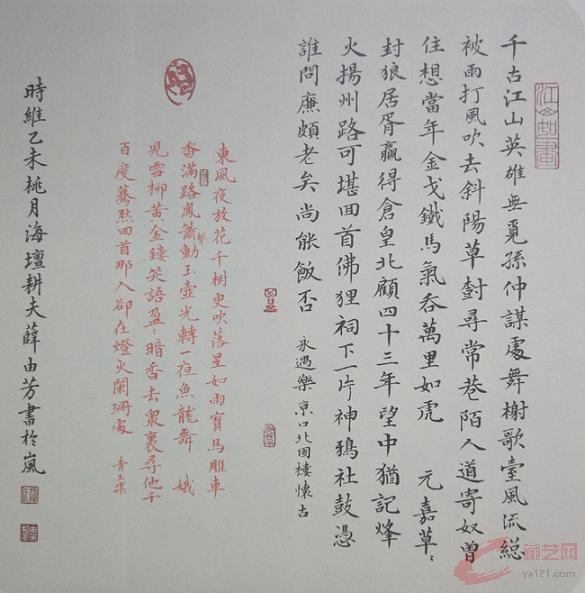 江山如畫
千古江山英雄無覓孫仲謀處舞榭歌臺風流總
被雨打風吹去斜陽草樹尋常巷陌人道寄奴曾
住想當年金戈鐵馬氣吞萬里如虎 元嘉草〻
封狼居胥贏得倉皇北顧四十三年望中猶記烽
火揚州路可堪回首佛狸祠下一片神鴉社鼓憑
誰問廉頗老矣尚能飯否 永遇樂 京口北固樓懷古
東風夜放花千樹更吹落星如雨寶馬雕車
香滿路鳳簫聲動玉壺光轉一夜魚龍舞 娥
兒雪柳黃金縷笑語盈〻暗香去衆裏尋他千
百度驀然回首那人卻在燈火闌珊處 青玉案
時維乙未桃月海壇耕夫薛由芳書於嵐
ys121.com